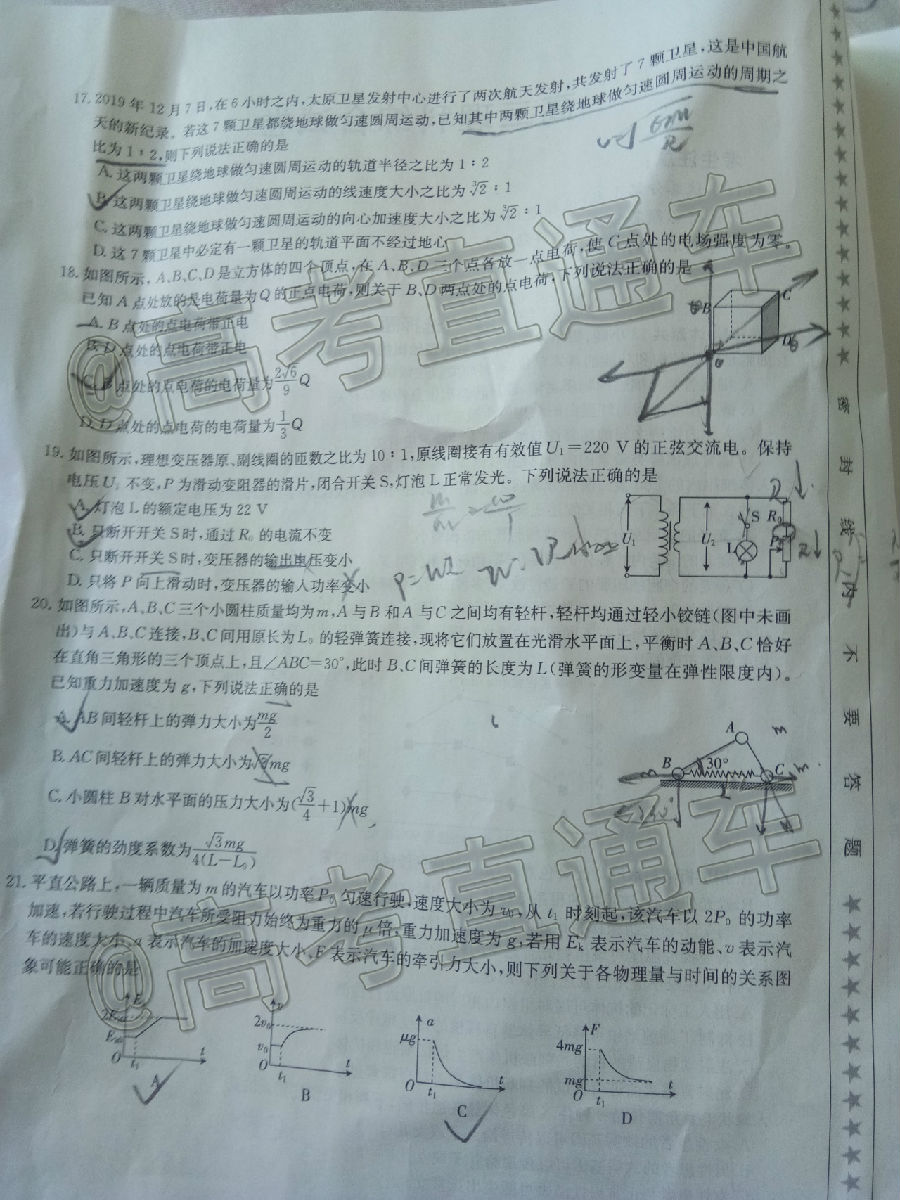 17. 2019 年 12 月 7 日,在 6 小时之内,太原卫星发射中心进行了两次航天发射,共发射了 7 颗卫星,这是中国航
天的新纪录。若这 7 颗卫星都绕地球做匀速圆周运动,已知其中两颗卫星绕地球做匀速圆周运动的周期之
比为 1∶2,则下列说法正确的是
A. 这两颗卫星绕地球做匀速圆周运动的轨道半径之比为 1∶2
B. 这两颗卫星绕地球做匀速圆周运动的线速度大小之比为 ∛2∶1
C. 这两颗卫星绕地球做匀速圆周运动的向心加速度大小之比为 ∛2∶1
D. 这 7 颗卫星中必定有一颗卫星的轨道平面不经过地心
18. 如图所示,A、B、C、D 是立方体的四个顶点,在 A、B、D 三个点各放一点电荷,使 C 点处的电场强度为零。
已知 A 点处放的是电荷量为 Q 的正点电荷,则关于 B、D 两点处的点电荷,下列说法正确的是
A. B 点处的点电荷带正电
B. D 点处的点电荷带正电
C. B 点处的点电荷的电荷量为 2√6/9 Q
D. D 点处的点电荷的电荷量为 1/3 Q
B C
D
19. 如图所示,理想变压器原、副线圈的匝数之比为 10∶1,原线圈接有有效值 U₁=220 V 的正弦交流电。保持
电压 U₁ 不变,P 为滑动变阻器的滑片,闭合开关 S,灯泡 L 正常发光。下列说法正确的是
A. 灯泡 L 的额定电压为 22 V
B. 只断开开关 S 时,通过 R₀ 的电流不变
C. 只断开开关 S 时,变压器的输出电压变小
D. 只将 P 向上滑动时,变压器的输入功率变小
U₁ U₂ S R₀ L P
20. 如图所示,A、B、C 三个小圆柱质量均为 m,A 与 B 和 A 与 C 之间均有轻杆,轻杆均通过轻小铰链(图中未画
出)与 A、B、C 连接,B、C 间用原长为 L₀ 的轻弹簧连接,现将它们放置在光滑水平面上,平衡时 A、B、C 恰好
在直角三角形的三个顶点上,且∠ABC=30°,此时 B、C 间弹簧的长度为 L(弹簧的形变量在弹性限度内)。
已知重力加速度为 g,下列说法正确的是
A. AB 间轻杆上的弹力大小为 mg/2
B. AC 间轻杆上的弹力大小为√3mg
C. 小圆柱 B 对水平面的压力大小为(√3/4+1)mg
D. 弹簧的劲度系数为 √3mg/4(L−L₀)
A
B 30° C
21. 平直公路上,一辆质量为 m 的汽车以功率 P₀ 匀速行驶,速度大小为 v₀,从 t₁ 时刻起,该汽车以 2P₀ 的功率
加速,若行驶过程中汽车所受阻力始终为重力的 μ 倍,重力加速度为 g,若用 Eₖ 表示汽车的动能、v 表示汽
车的速度大小、a 表示汽车的加速度大小、F 表示汽车的牵引力大小,则下列关于各物理量与时间的关系图
象可能正确的是
O t₁ t
A
v 2v₀ v₀ O t₁ t
B
a μg O t₁ t
C
F 4mg mg O t₁ t
D
密 封 线 内 不 要 答 题
@高考直通车
@高考直通车